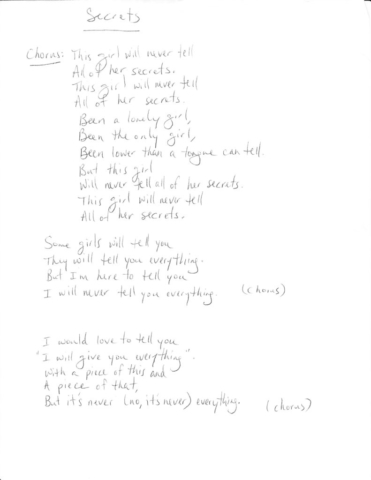 Secrets
Chorus: This girl will never tell
All of her secrets.
This girl will never tell
All of her secrets.
Been a lonely girl,
Been the only girl,
Been lower than a tongue can tell.
But this girl
Will never tell all of her secrets.
This girl will never tell
All of her secrets.
Some girls will tell you
They will tell you everything.
But I'm here to tell you
I will never tell you everything. (chorus)
I would love to tell you
"I will give you everything".
With a piece of this and
A piece of that,
But it's never (no, it's never) everything. (chorus)